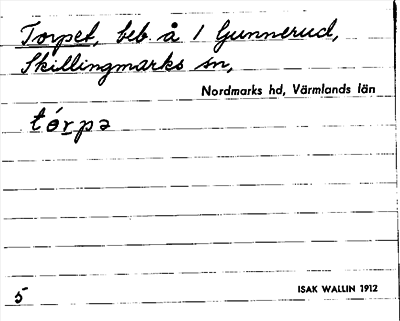 Torpet, beb. å 1 Gunnerud,
Skillingmarks sn,
Nordmarks hd, Värmlands län
tórpə
5
ISAK WALLIN 1912